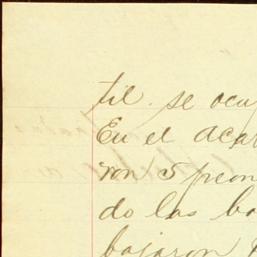 til. se ocu
En el acar
ron 5 peon
do las ba
bajaron